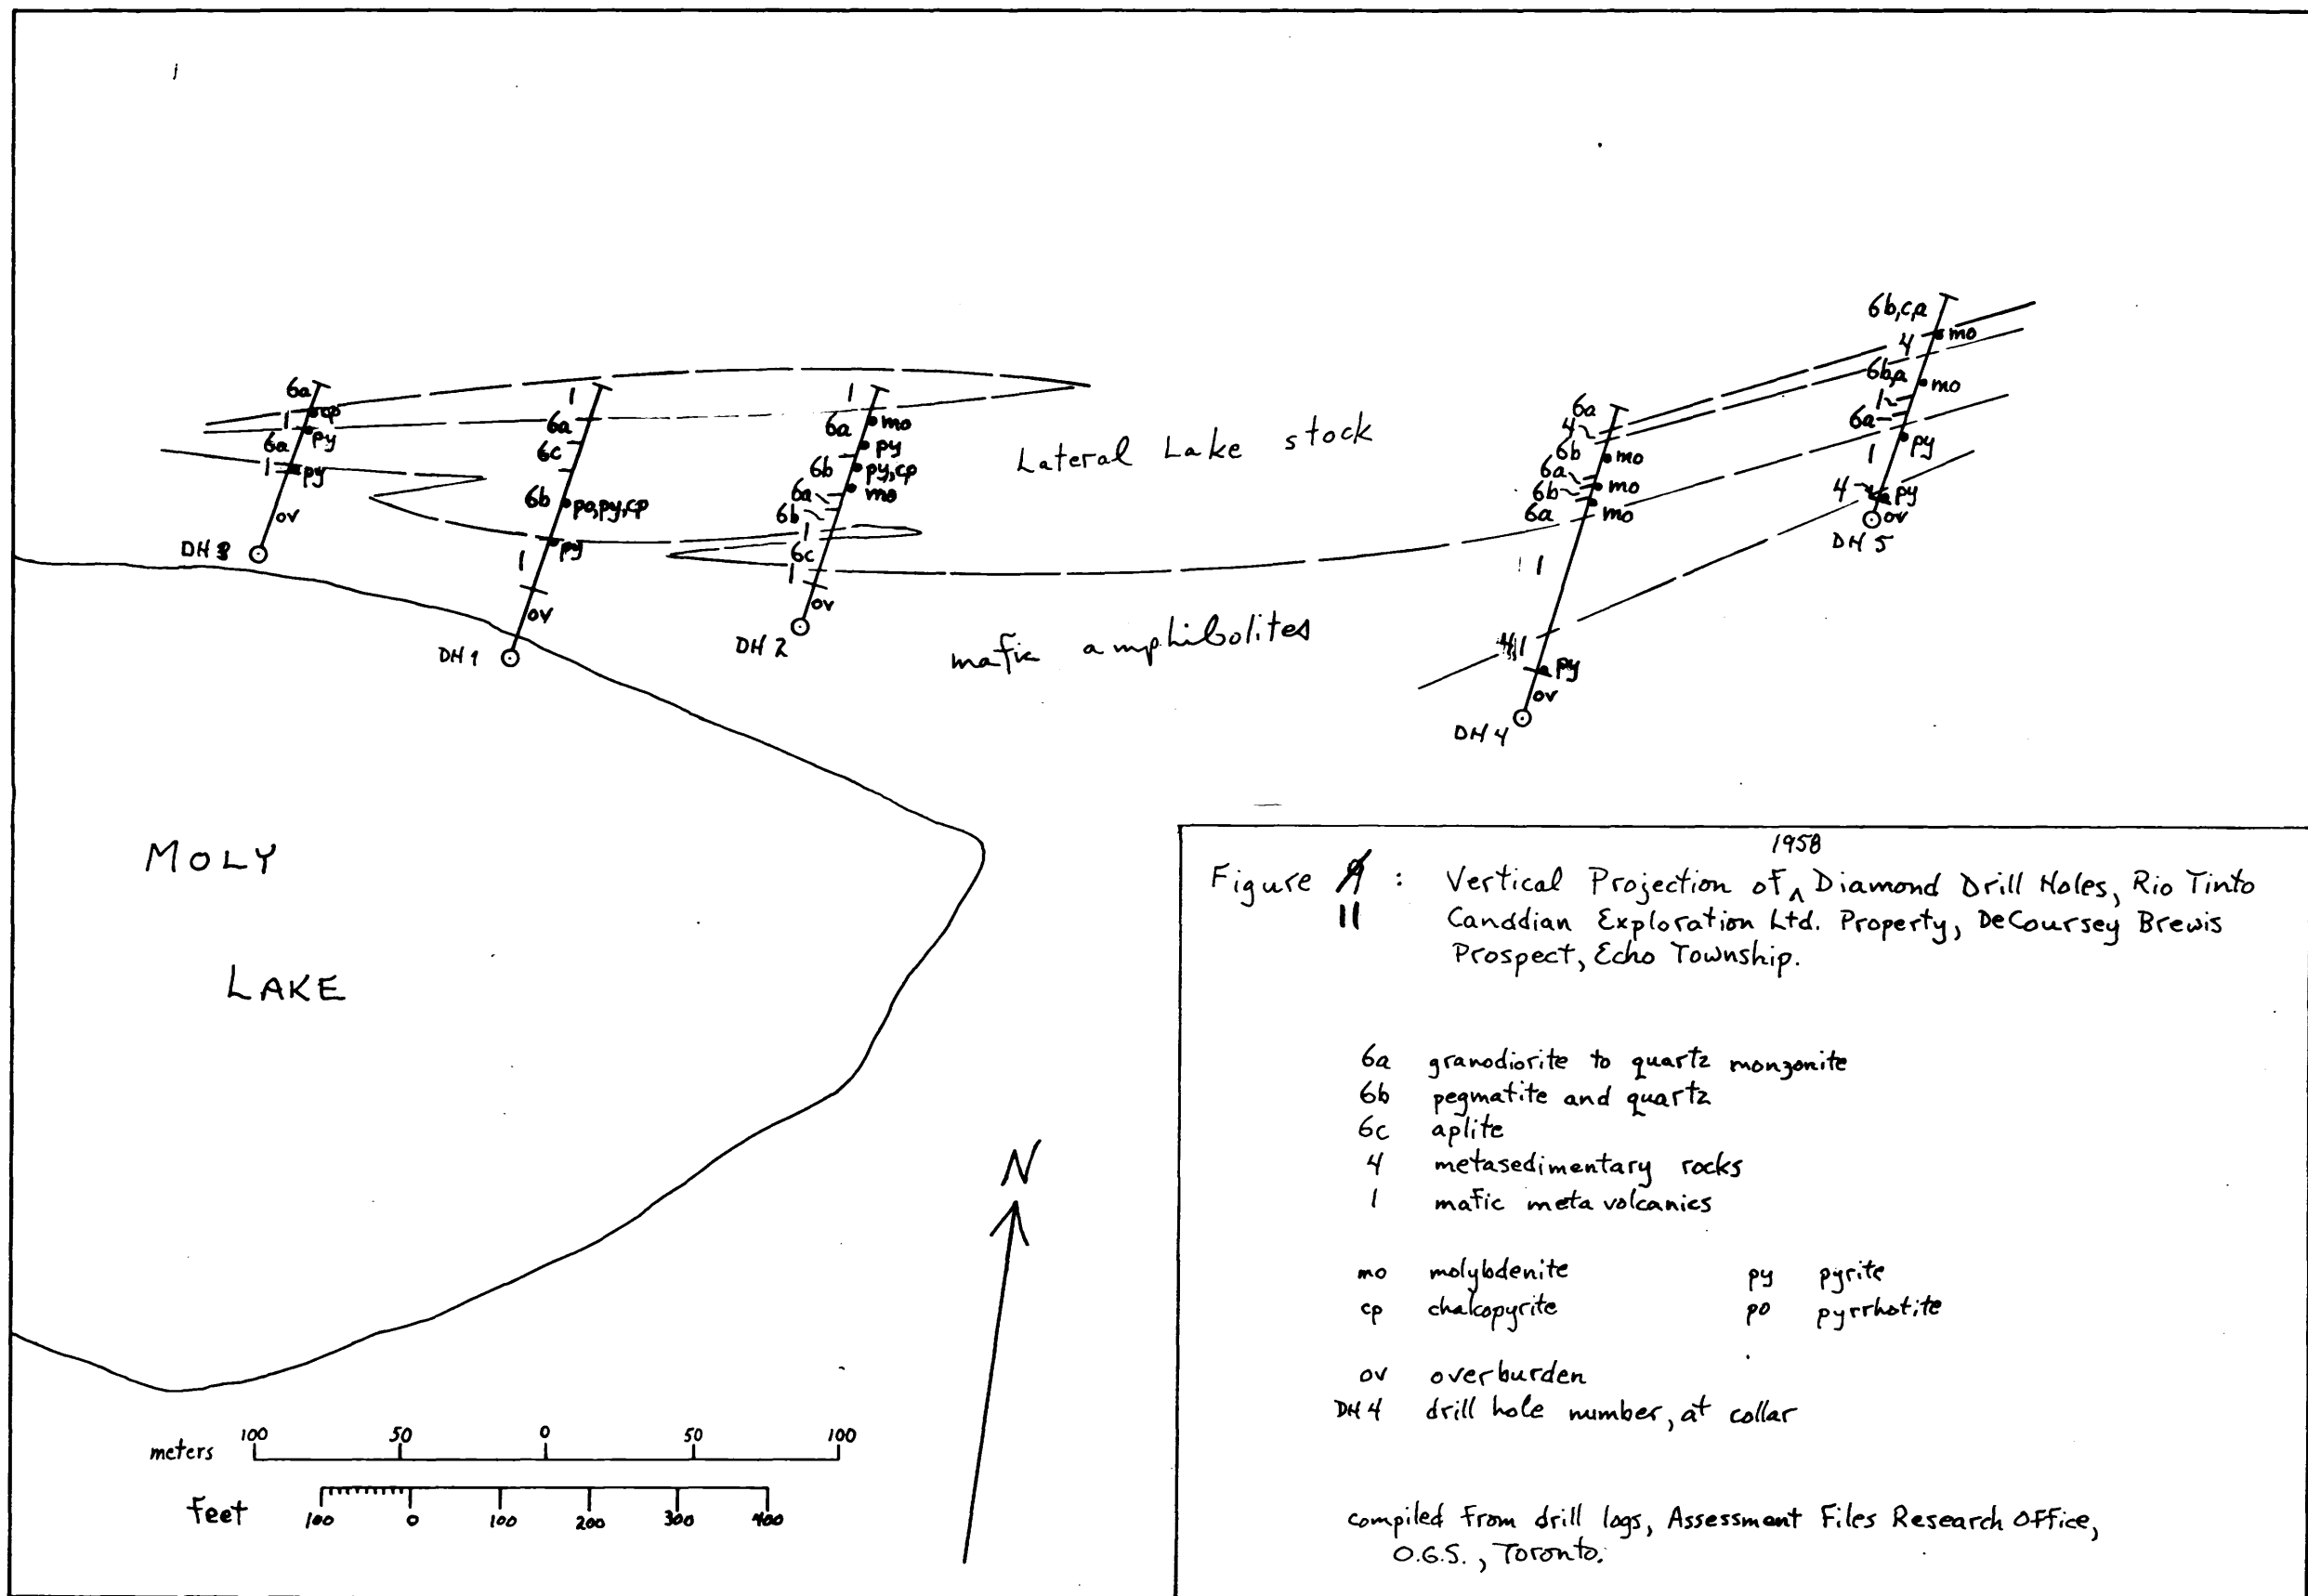 6a
cp
1
py
6a
1
py
ov
DH 3
1
6a
6c
6b
po,py,cp
py
1
ov
DH 1
1
mo
6a
py
6b
py,cp
6a
mo
6b
1
6c
1
ov
DH 2
Lateral Lake stock
mafic amphibolites
6a
4
6b
mo
6a
mo
6b
6a
mo
1
1
py
ov
DH 4
6b,c,a
mo
4
6b,a
mo
1
6a
py
1
4
py
ov
DH 5
MOLY
LAKE
N
meters 100 50 0 50 100
feet 100 0 100 200 300 400
1958
Figure 11 : Vertical Projection of ^ Diamond Drill Holes, Rio Tinto
Canddian Exploration Ltd. Property, DeCoursey Brewis
Prospect, Echo Township.
6a granodiorite to quartz monzonite
6b pegmatite and quartz
6c aplite
4 metasedimentary rocks
1 mafic meta volcanics
mo molybdenite py pyrite
cp chalcopyrite po pyrrhotite
ov overburden
DH 4 drill hole number, at collar
compiled from drill logs, Assessment Files Research Office,
O.G.S., Toronto.